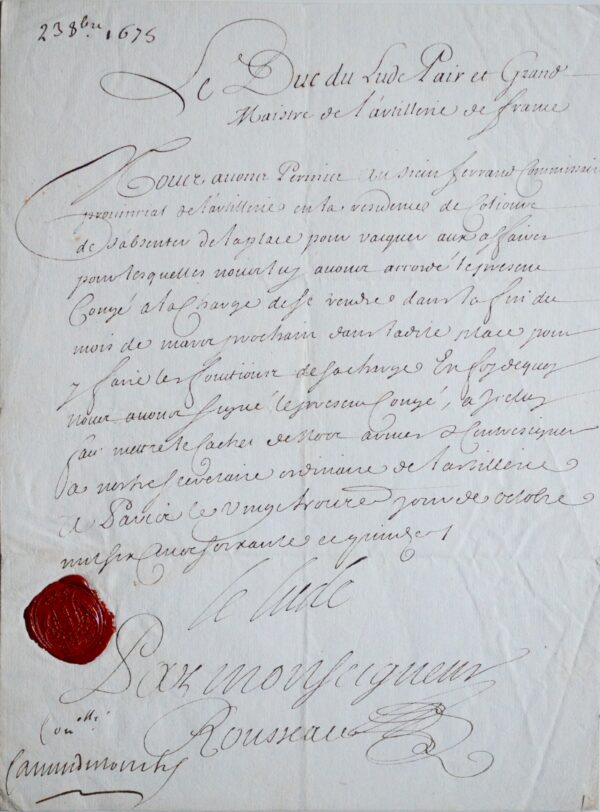 23 8bre 1675
Le Duc du Lude Pair et Grand
Maistre de l'artillerie de france
Nous avons Permis au sieur ferrand Commissaire
provincial de l'artillerie en la residence de
de s'absenter de la place pour vacquer aux affaires
pour lesquelles nous luy avons accordé le present
Congé a la charge de se rendre dans la fin du
mois de mars prochain dans ladite place pour
y faire les fonctions de sa charge En foy de quoy
nous avons signé le present Congé, a Iceluy
fait mettre le cachet de nos armes & Contresigner
a nostre secretaire ordinaire de l'artillerie
A Paris le vingt trois jour de octobre
mil six cens soixante et quinze
le lude
Par monseigneur
Rousseau